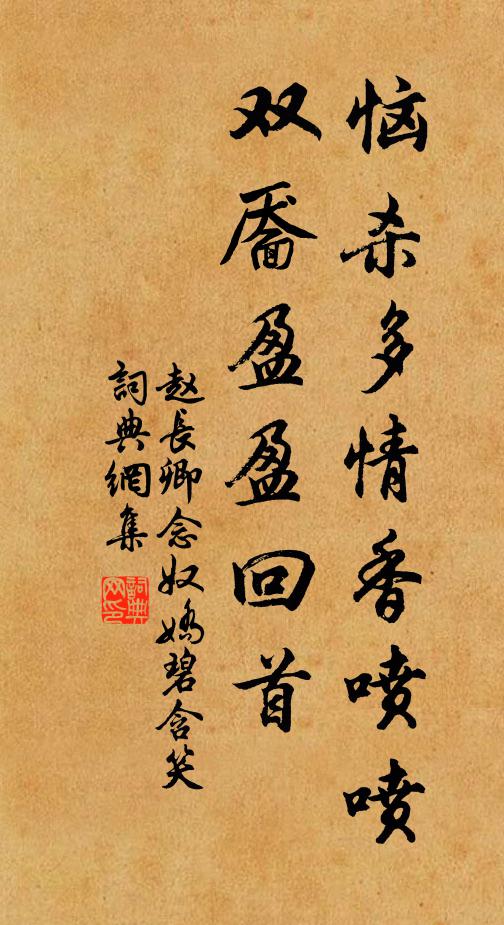 恼杀多情香喷喷
双靥盈盈回首
赵長卿念奴嬌碧含笑
詞典網集
詞典網印